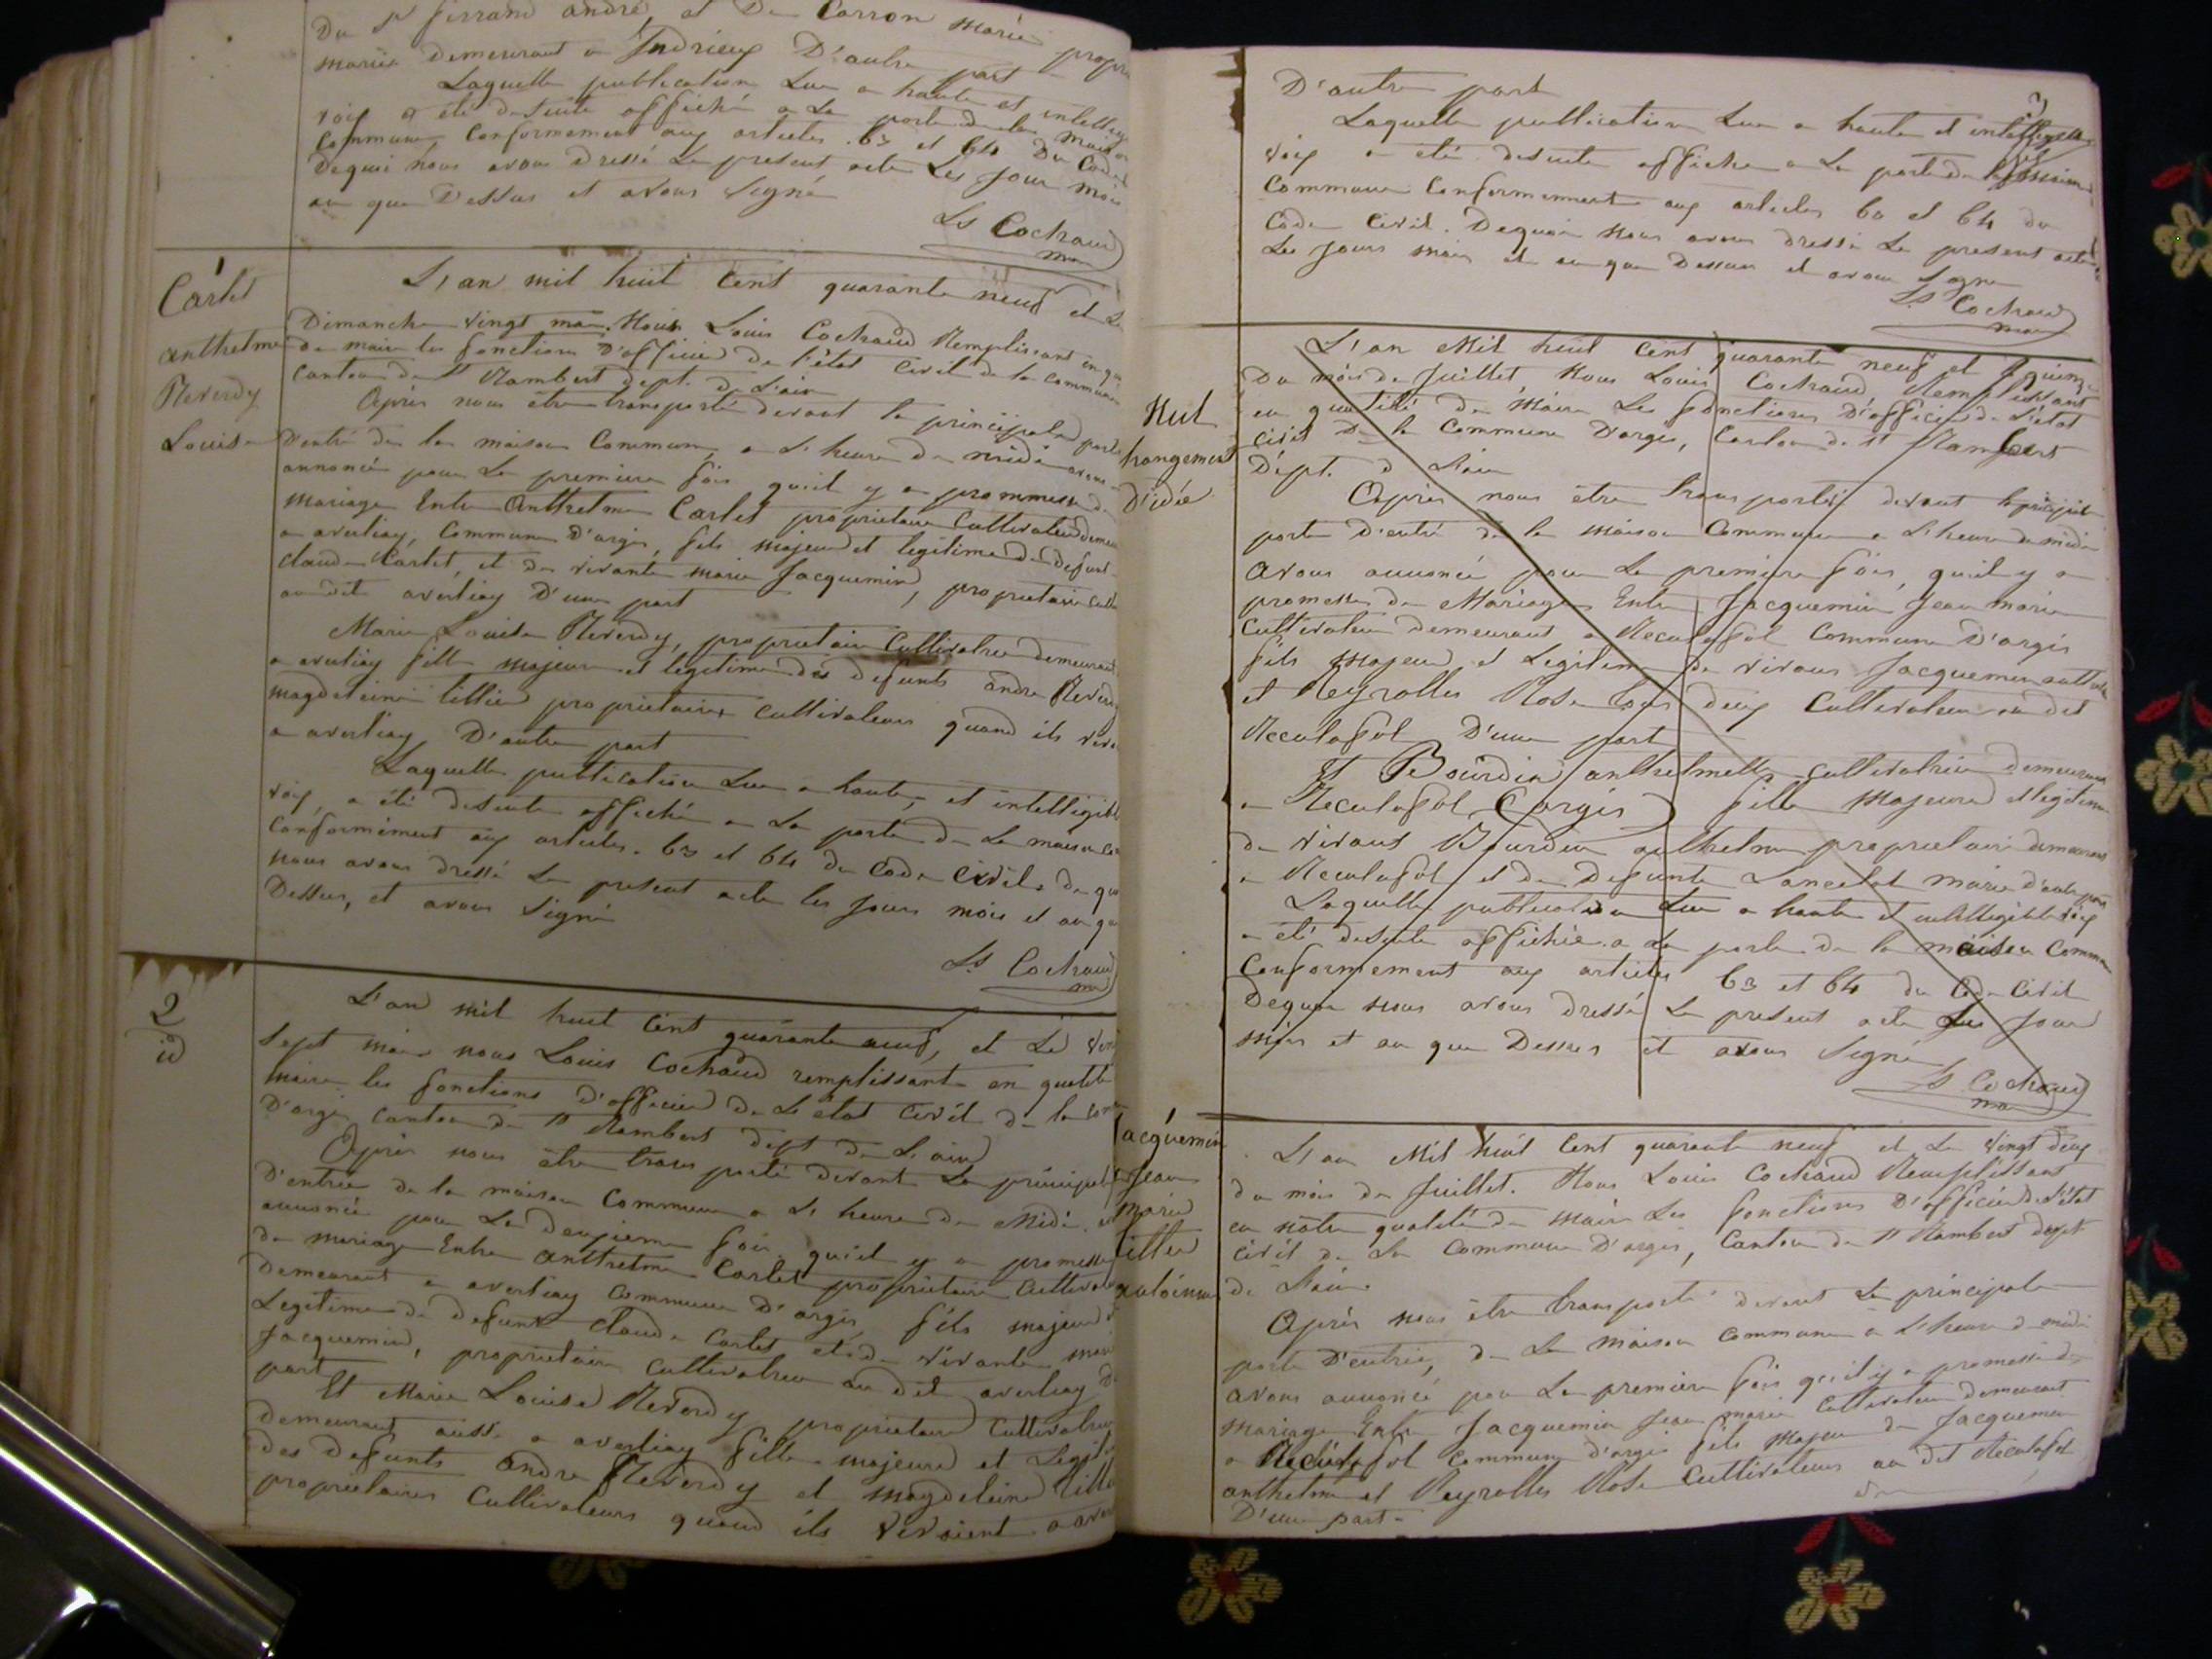 Du Sr ferrand andré, et De Carron Marie propri
mariés Demeurant a Indrieux D'autre part
Laquelle publication Lue a haute et intelligi
voix a été desuite affiché a La porte de la Maison
Commune, Conformement aux articles 63 et 64 Du Code
Dequoi nous avons dressé Le present acte Les Jour Mois
an que Dessus et avons Signé
Ls Cochaud
1
Carlet
anthelme
Reverdy
Louise
L'an mil huit Cent quarante neuf et Le
Dimanche vingt mai. Nous Louis Cochaud Remplissant en qu
de maire les fonctions D'officier de l'état Civil de la Commune
Canton de St Rambert dept. de L'ain
Après nous être transporté devant la principale porte
D'entré de la maison Commune, a L'heure de midi avons
annoncé pour La premiere fois qu'il y a prommesse de
Mariage Entre Anthelme Carlet proprietaire Cultivateur demeu
a averliaz, Commune D'argis, fils majeur et legitime de defunt
claude Carlet, et de vivante marie Jacquemin, proprietaire cult
au dit averliaz D'une part
Marie Louise Reverdy, proprietaire Cultivatrice demeurant
a averliaz fille majeure et legitime des defunts andre Reverdy
magdeleine tillier proprietaires cultivateurs quand ils viva
a averliaz D'autre part
Laquelle publication Lue a haute, et intelligible
voix, a été desuite affiché a La porte de La maison Co
Conformément aux articles. 63 et 64 du Code Civil. De quoi
nous avons dressé Le present acte les Jours mois et an que
Dessus, et avons Signé
Ls Cochaud
2
id
L'an mil huit Cent quarante neuf, et Le vin
Sept mai nous Louis Cochaud remplissant en qualité
maire les fonctions d'officier de L'état Civil de la Com
D'argis canton de St Rambert dept de L'ain
Après nous être transporté devant La principale
D'entrée de la maison Commune a L'heure de Midi,
annoncé pour La deuxieme fois qu'il y a promesse
de mariage Entre anthelme Carlet proprietaire Cultivat
Demeurant a averliaz Commune D'argis, fils majeur
Legitime de defunt claude Carlet et de vivante mari
Jacquemin, proprietaire Cultivatrice au dit averliaz D'
part
Et Marie Louise Reverdy proprietaire Cultivatrice
Demeurant aussi a averliaz fille majeure et Legiti
Des Defunts Andre Reverdy et magdeleine tillie
proprietaires Cultivateurs quand ils vivaient a aver
3
D'autre part
Laquelle publication Lue a haute et intelligible
voix a été desuite affiché a La porte de la maison
Commune Conformement aux articles 63 et 64 du
Code Civil. Dequoi nous avons dressé Le present acte
Les Jours mois et an que Dessus et avons Signé
Ls Cochaud
Nul
hangement
D'idée
L'an Mil huit Cent quarante neuf et Le quinze
Du mois de Juillet, Nous Louis Cochaud, Remplissant
en qualité de Maire Les fonctions D'officier de L'état
civil De la Commune D'argis, Canton de St Rambert
Dépt. de L'ain
Après nous être transporté devant la principale
porte D'entré de la maison Commune a L'heure de midi
avons annoncé pour La premiere fois, qu'il y a
promesse de Mariage Entre Jacquemin Jean marie
Cultivateur demeurant a Reculafol Commune D'argis
fils Majeur et Legitime de vivans Jacquemin anthelme
et Reyrolles Rose tous deux Cultivateurs au dit
Reculafol D'une part
Et Bourdin anthelmette cultivatrice demeurant
a Reculafol (argis) fille Majeure et legitime
de vivant Bourdin anthelme proprietaire demeurant
a Reculafol et de Defunte Lancelot marie d'autre part
Laquelle publication Lue a haute et intelligible voix
a été desuite affichée a La porte de la maison Commune
Conformement aux articles 63 et 64 du Code Civil
Dequoi nous avons dressé Le present acte Les Jour
mois et an que Dessus et avons Signé
Ls Cochaud
Jacquemin
Jean
Marie
tillier
antoinette
L'an Mil huit Cent quarante neuf et Le vingt deux
du mois de Juillet. Nous Louis Cochaud Remplissant
en notre qualité de Maire Les fonctions D'officier de L'état
Civil de La Commune D'argis, Canton de St Rambert dept
de L'ain.
Après nous être transporté devant La principale
porte D'entrée, de La Maison Commune a L'heure de midi
avons annoncé pour La premiere fois qu'il y a promesse de
Mariage Entre Jacquemin Jean marie Cultivateur demeurant
a Reculafol Commune d'argis fils Majeur de Jacquemin
anthelme et Reyrolles Rose Cultivateurs au Dit Reculafol
D'une part